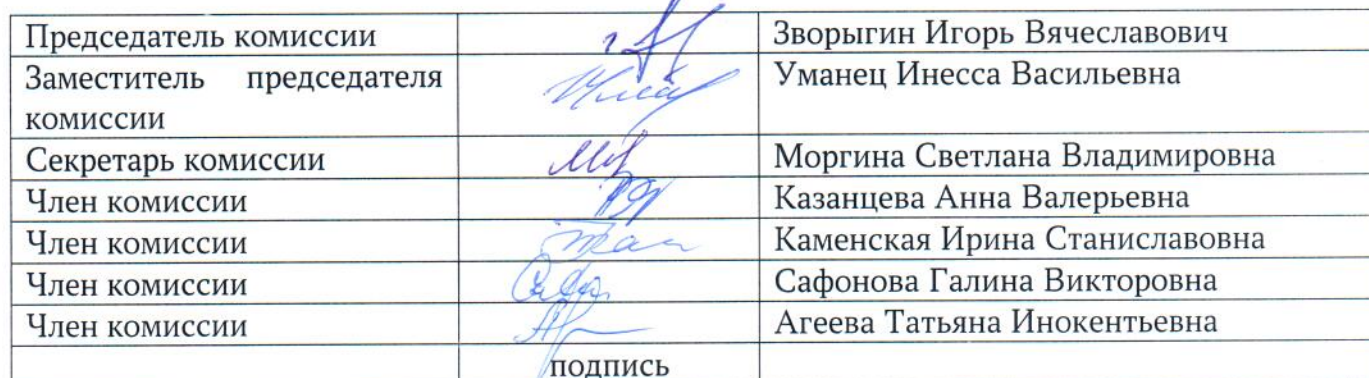 Председатель комиссии Зворыгин Игорь Вячеславович
Заместитель председателя Уманец Инесса Васильевна
комиссии
Секретарь комиссии Моргина Светлана Владимировна
Член комиссии Казанцева Анна Валерьевна
Член комиссии Каменская Ирина Станиславовна
Член комиссии Сафонова Галина Викторовна
Член комиссии Агеева Татьяна Инокентьевна
подпись